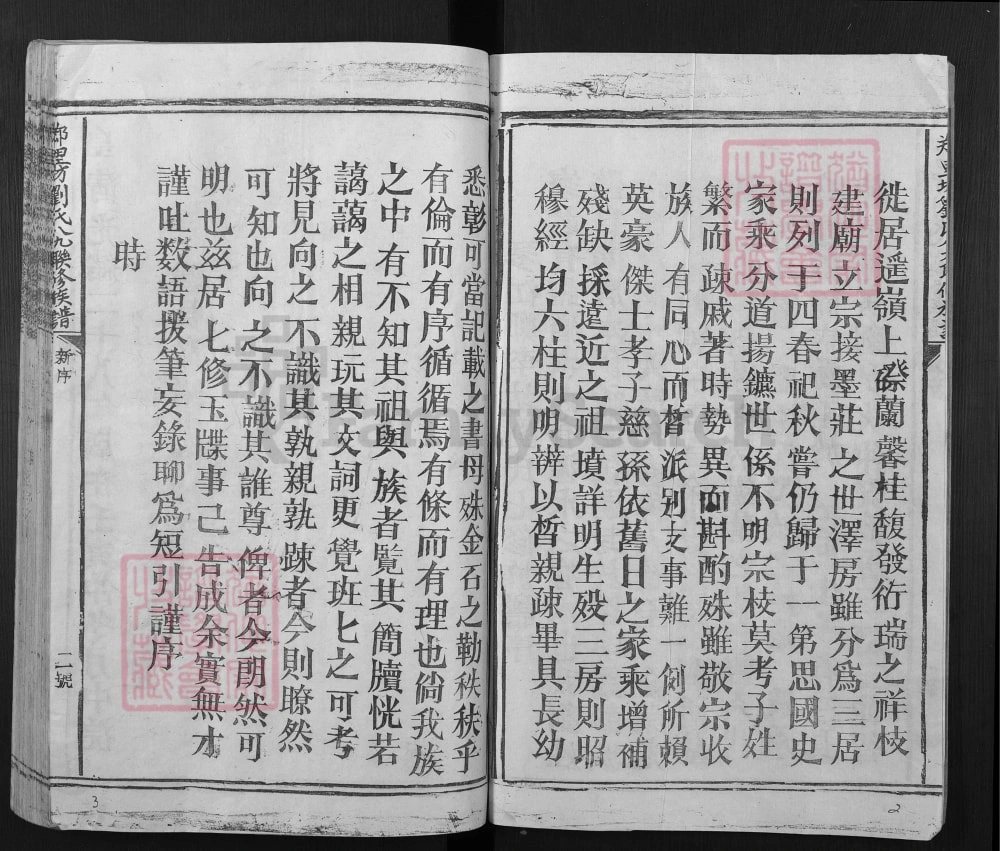 徙居遥嶺上磜蘭馨桂馥發衍瑞之祥枝
建廟立宗接墨莊之世澤房雖分為三居
則列于四春祀秋嘗仍歸于一第思國史
家乘分道揚鑣世係不明宗枝莫考子姓
繁而疎戚著時勢異而斟酌殊雖敬宗收
族人有同心而晳派别支事難一例所賴
英豪傑士孝子慈孫依舊日之家乘增補
殘缺採遠近之祖墳詳明生殁三房則昭
穆經均六柱則明辨以晢親疎畢具長幼
悉彰可當記載之書毋殊金石之勒秩秩乎
有倫而有序循循焉有條而有理也倘我族
之中有不知其祖與族者覽其簡牘恍若
藹藹之相親玩其文詞更覺班匕之可考
將見向之不識其孰親孰疎者今則瞭然
可知也向之不識其誰尊俾者今朗然可
明也兹居七修玉牒事己告成余實無才
謹吐数語援筆妄錄聊為短引謹序
時
劉氏九聯修族譜
新序
二號
FamilySearch
2
3